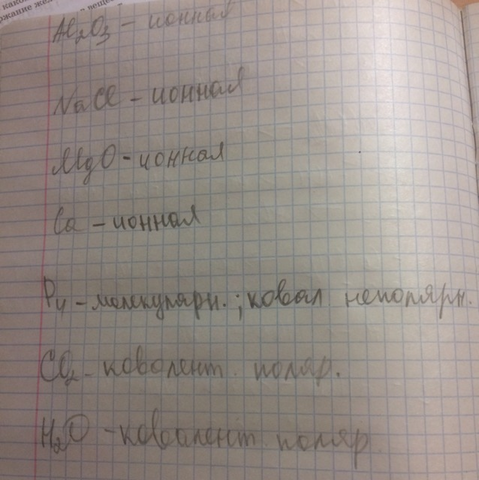 Al₂O₃ – ионная
NaCl – ионная
MgO – ионная
Ca – ионная
P₄ – молекулярн.; ковал неполярн.
CO₂ – ковалент поляр.
H₂O – ковалент поляр